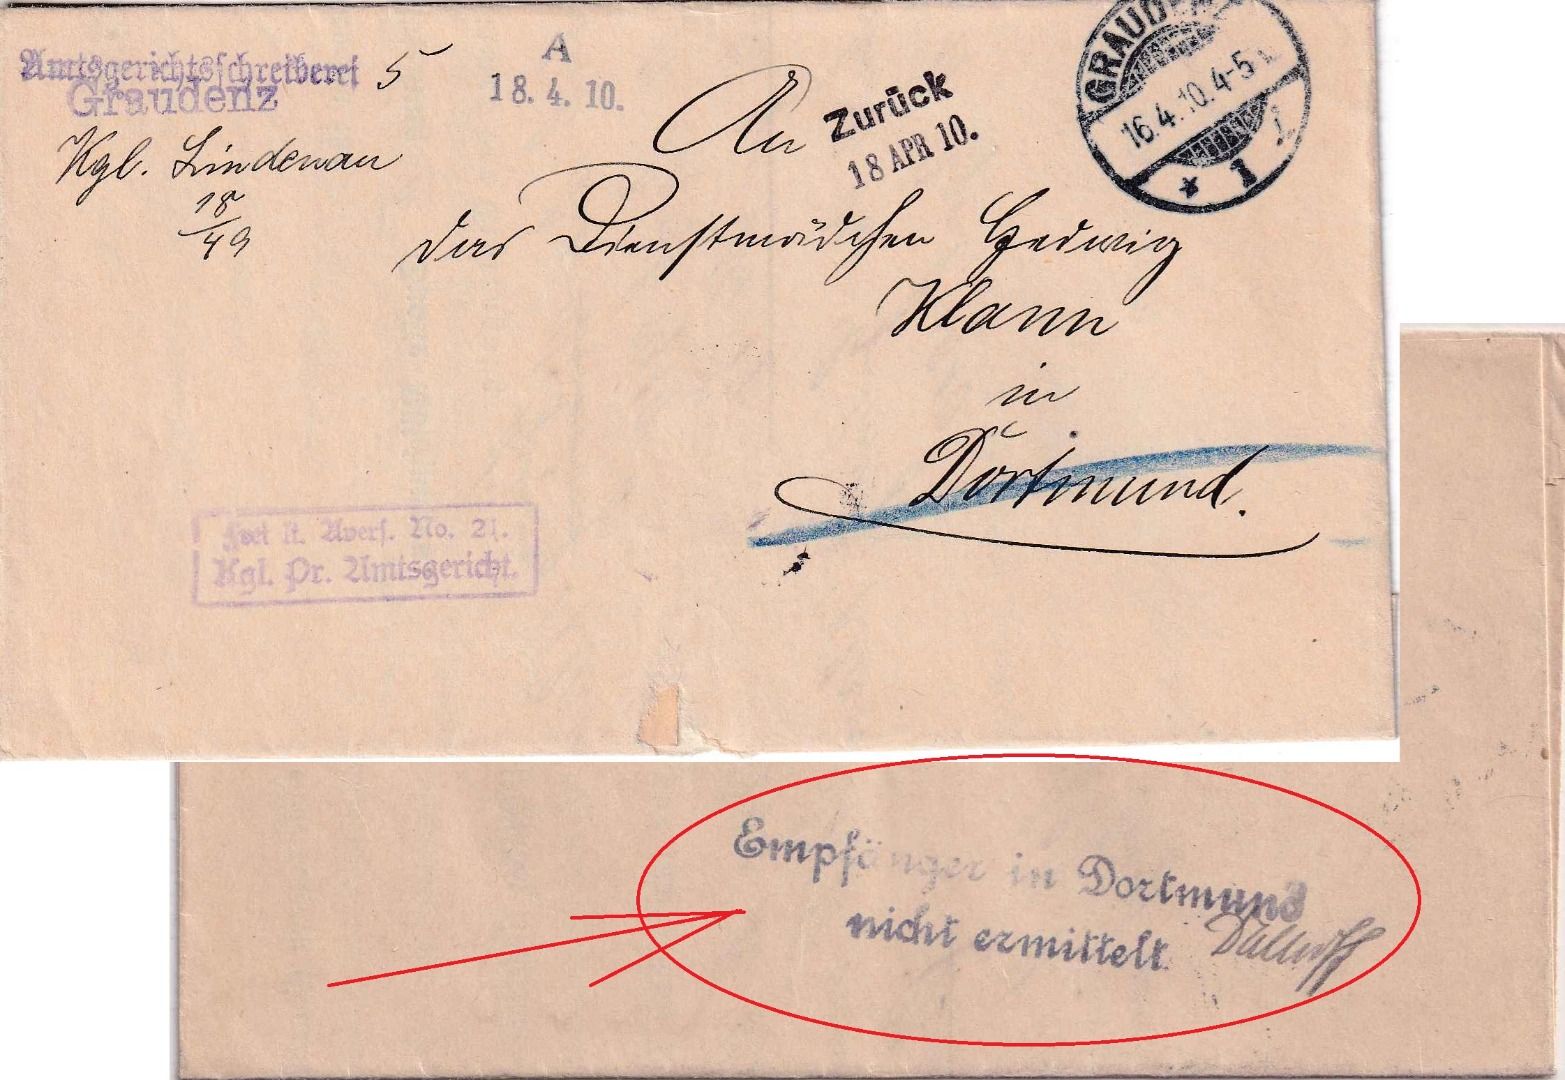 Amtsgerichtsschreiberei 5
Graudenz
Kgl. Lindenau
18
49
A
18. 4. 10.
Zurück
18 APR 10.
GRAUDENZ
16.4.10.4-5
* 1
An
das Dienstmädchen Hedwig
Klann
in
Dortmund.
Frei lt. Avers. No. 21.
Kgl. Pr. Amtsgericht.
Empfänger in Dortmund
nicht ermittelt.